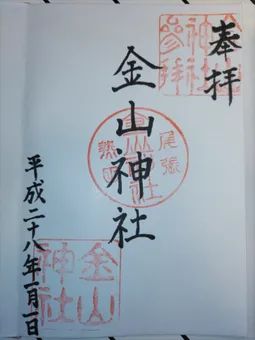 奉拝
金山神社
平成二十八年一月一日
金山
神社
參拜
尾張
熱田
金山
神社